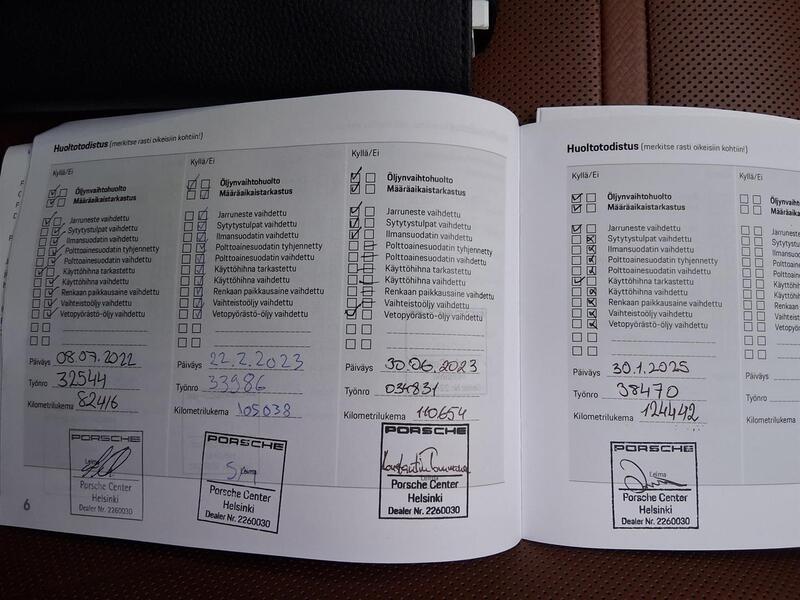 Huoltotodistus (merkitse rasti oikeisiin kohtiin!)
Kyllä/Ei
Öljynvaihtohuolto
Määräaikaistarkastus
Jarruneste vaihdettu
Sytytystulpat vaihdettu
Ilmansuodatin vaihdettu
Polttoainesuodatin tyhjennetty
Polttoainesuodatin vaihdettu
Käyttöhihna tarkastettu
Käyttöhihna vaihdettu
Renkaan paikkausaine vaihdettu
Vaihteistoöljy vaihdettu
Vetopyörästö-öljy vaihdettu
Päiväys 08.07.2022
Työnro 32544
Kilometrilukema 82416
PORSCHE
Leima
Porsche Center
Helsinki
Dealer Nr. 2260030
6
Kyllä/Ei
Öljynvaihtohuolto
Määräaikaistarkastus
Jarruneste vaihdettu
Sytytystulpat vaihdettu
Ilmansuodatin vaihdettu
Polttoainesuodatin tyhjennetty
Polttoainesuodatin vaihdettu
Käyttöhihna tarkastettu
Käyttöhihna vaihdettu
Renkaan paikkausaine vaihdettu
Vaihteistoöljy vaihdettu
Vetopyörästö-öljy vaihdettu
Päiväys 22.2.2023
Työnro 33986
Kilometrilukema 105038
PORSCHE
Leima
Porsche Center
Helsinki
Dealer Nr. 2260030
Kyllä/Ei
Öljynvaihtohuolto
Määräaikaistarkastus
Jarruneste vaihdettu
Sytytystulpat vaihdettu
Ilmansuodatin vaihdettu
Polttoainesuodatin tyhjennetty
Polttoainesuodatin vaihdettu
Käyttöhihna tarkastettu
Käyttöhihna vaihdettu
Renkaan paikkausaine vaihdettu
Vaihteistoöljy vaihdettu
Vetopyörästö-öljy vaihdettu
Päiväys 30.06.2023
Työnro 034831
Kilometrilukema 110654
PORSCHE
Leima
Porsche Center
Helsinki
Dealer Nr. 2260030
Huoltotodistus (merkitse rasti oikeisiin kohtiin!)
Kyllä/Ei
Öljynvaihtohuolto
Määräaikaistarkastus
Jarruneste vaihdettu
Sytytystulpat vaihdettu
Ilmansuodatin vaihdettu
Polttoainesuodatin tyhjennetty
Polttoainesuodatin vaihdettu
Käyttöhihna tarkastettu
Käyttöhihna vaihdettu
Renkaan paikkausaine vaihdettu
Vaihteistoöljy vaihdettu
Vetopyörästö-öljy vaihdettu
Päiväys 30.1.2025
Työnro 38470
Kilometrilukema 124442
PORSCHE
Leima
Porsche Center
Helsinki
Dealer Nr. 2260030
Kyllä/Ei